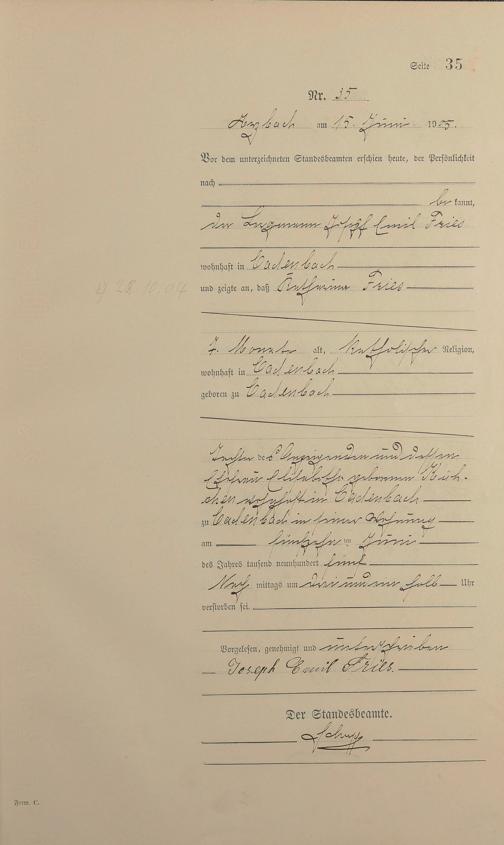 Seite 35
Nr. 35
am 15. Juni 1905.
Vor dem unterzeichneten Standesbeamten erschien heute, der Persönlichkeit
nach
be kannt,
der Bergmann Josef Emil Fries
wohnhaft in Cadenbach
und zeigte an, daß Katharina Fries
7 Monate alt, katholischer Religion,
wohnhaft in Cadenbach
geboren zu Cadenbach
Tochter des Anzeigenden und dessen
Ehefrau Elisabetha geborenen
wohnhaft in Cadenbach
zu Cadenbach in seiner Wohnung
am fünfzehn ten Juni
des Jahres tausend neunhundert fünf
Nach mittags um halb Uhr
verstorben sei.
Vorgelesen, genehmigt und unterschrieben
Joseph Emil Fries.
Der Standesbeamte.
Form. C.